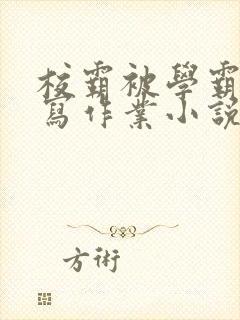 校霸被學霸
寫作業小説
方術